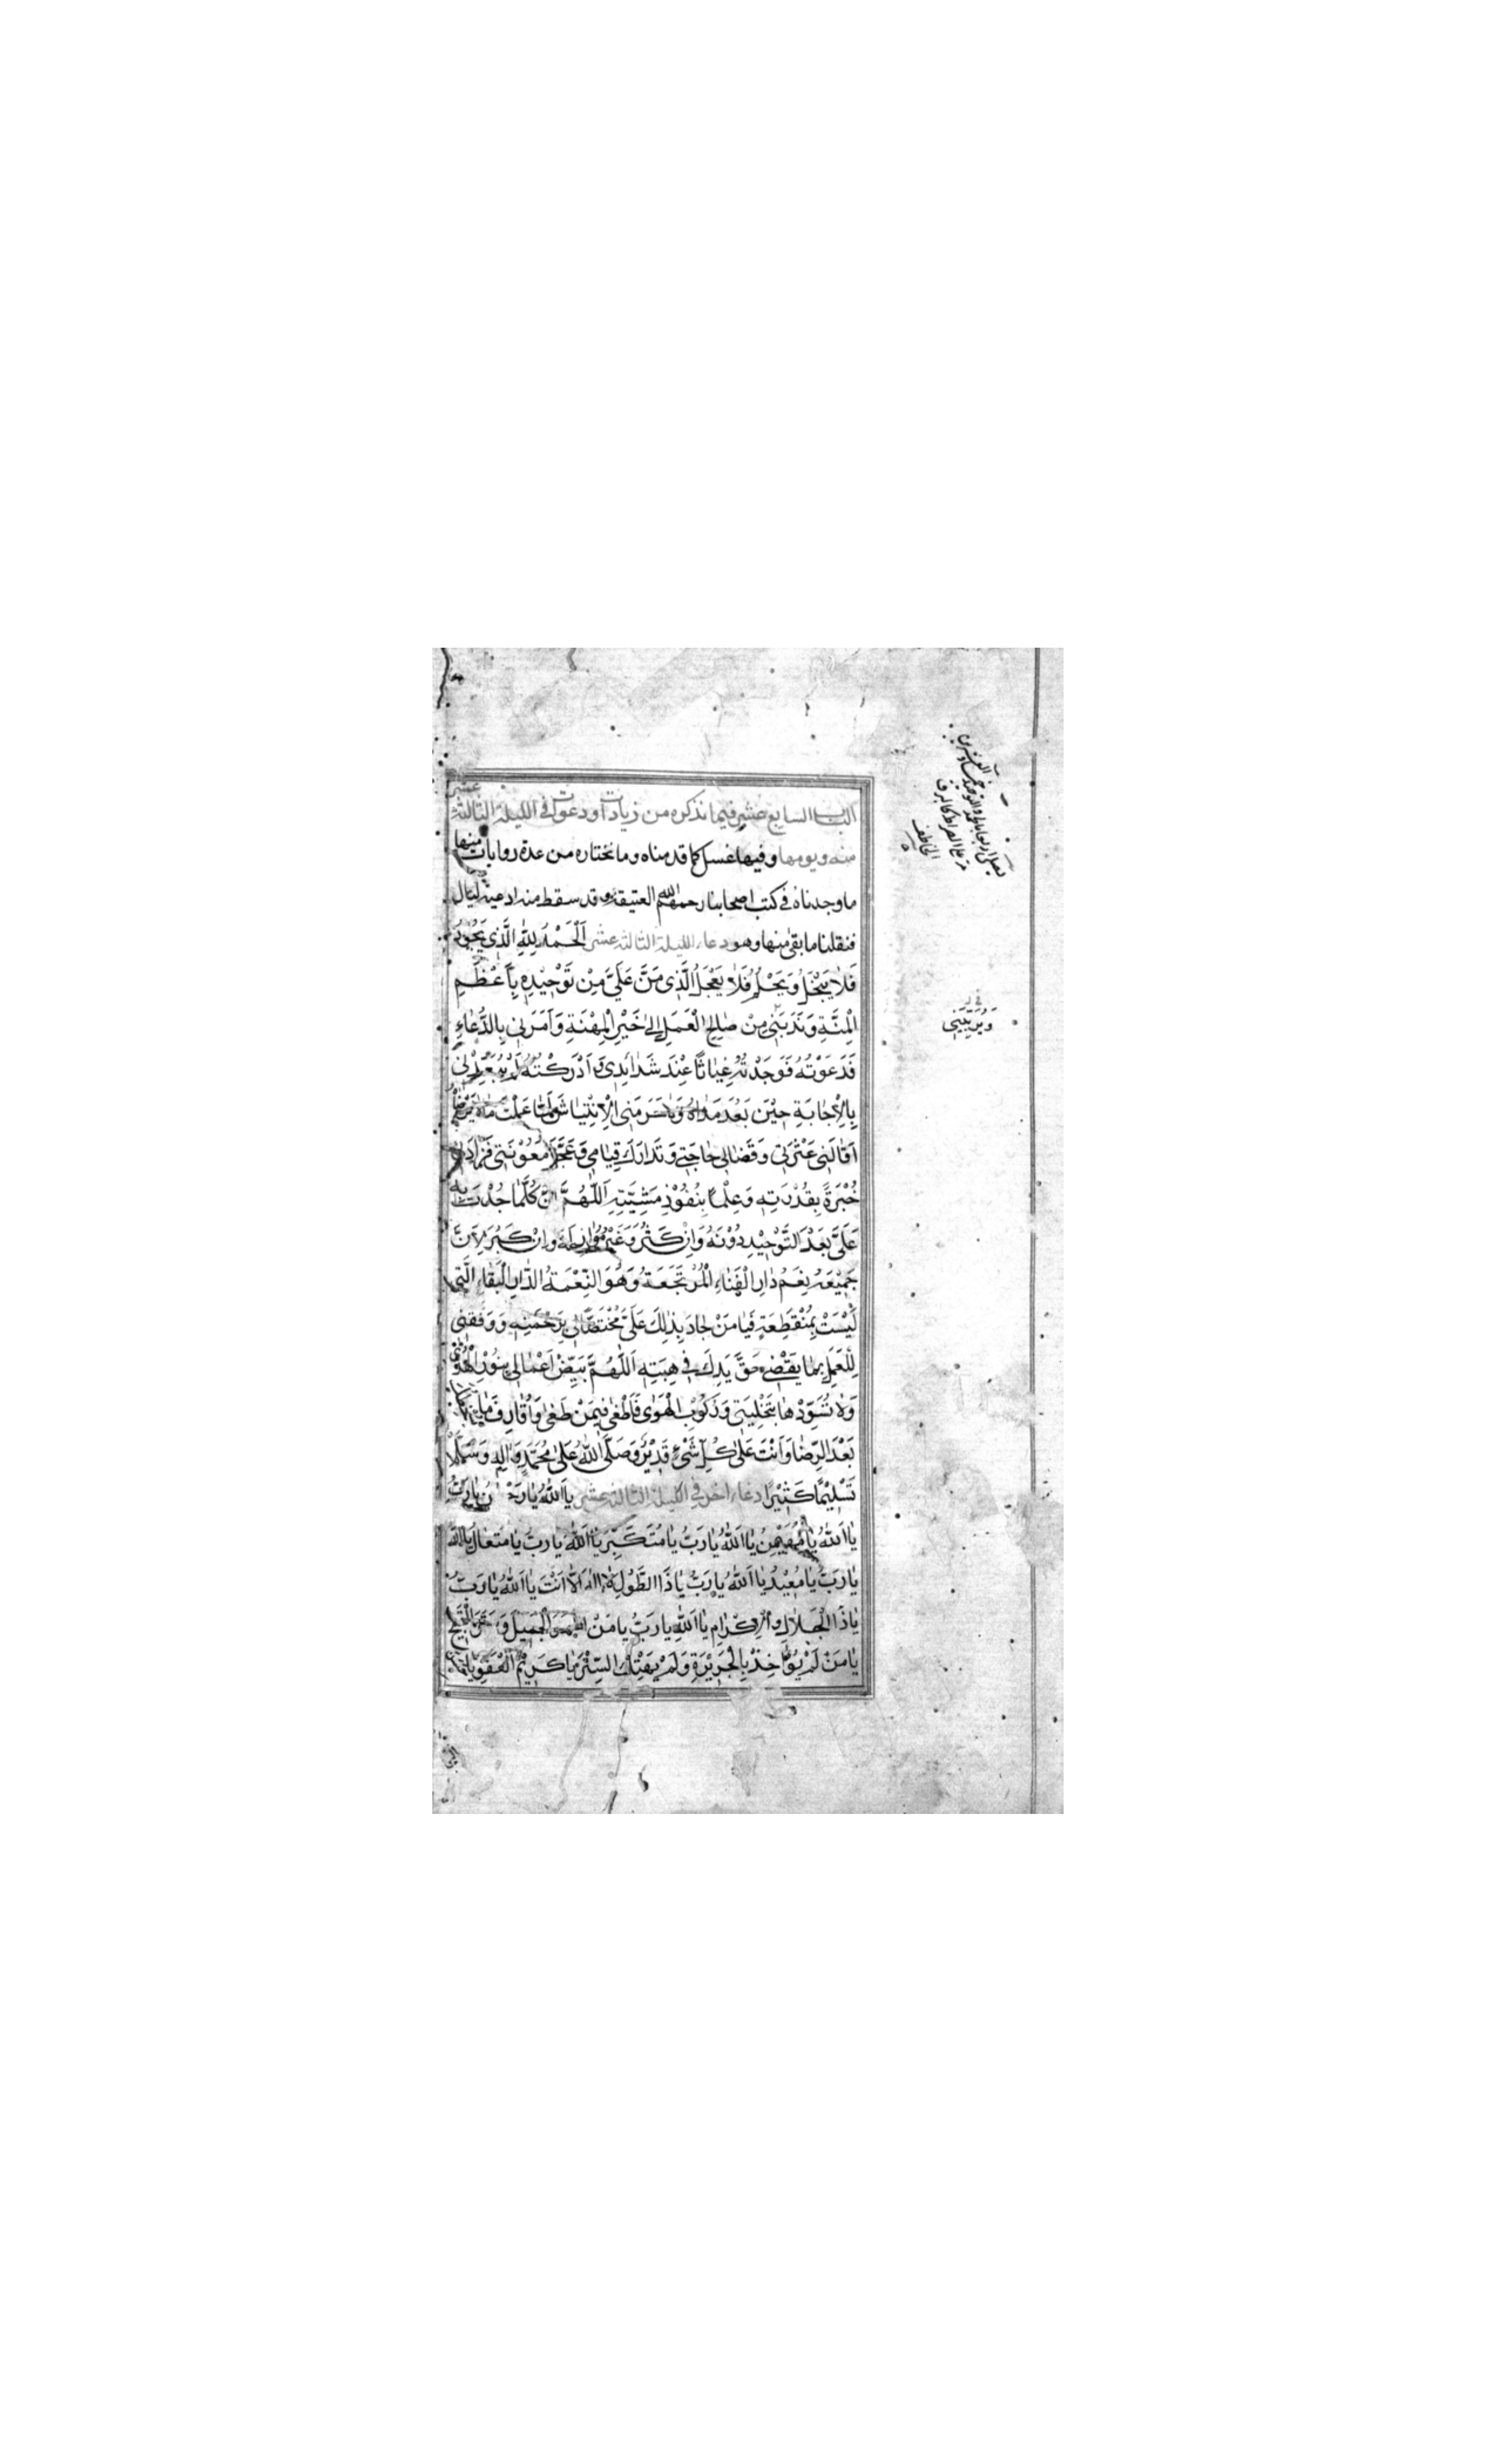 الباب السابع عشر فيما نذكره من زيادات ودعوات في الليلة الثالثة عشر
منه ويومها وفيها غسل كما قدمناه وما نختاره من عدة روايات منها
ما وجدناه في كتب اصحابنا رحمهم الله العتيقة وقد سقط منه ادعية ليال
فنقلنا ما بقى منها وهو دعاء الليلة الثالثة عشر اَلْحَمْدُ لِلّٰهِ الَّذِي يَجُودُ
فَلاٰ يَبْخَلُ وَيَحْلُمُ فَلاٰ يَعْجَلُ الَّذِي مَنَّ عَلَيَّ مِنْ تَوْحِيْدِهِ بِاَعْظَمِ
الْمِنَّةِ وَنَدَبَنِي مِنْ صٰالِحِ الْعَمَلِ اِلىٰ خَيْرِ الْمِهْنَةِ وَاَمَرَنِي بِالدُّعٰاءِ
فَدَعَوْتُهُ فَوَجَدْتُهُ غِيٰاثًا عِنْدَ شَدٰائِدِي وَاَدْرَكْتُهُ لَمْ يُبَعِّدْنِي
بِالْاِجٰابَةِ حِيْنَ بَعُدَ مَدٰاهُ وَلاٰ حَرَمَنِي الْاِنْتِيٰاشَ لَمّٰا عَمِلْتُ مٰا لاٰ يَرْضٰاهُ
اَقٰالَنِي عَثْرَتِي وَقَضٰا لِي حٰاجَتِي وَتَدٰارَكَ قِيٰامِي وَعَجَّلَ مَعُوْنَتِي فَزٰادَنِي
خُبْرَةً بِقُدْرَتِهِ وَعِلْمًا بِنُفُوْذِ مَشِيَّتِهِ اَللّٰهُمَّ اِنَّ كُلَّمٰا جُدْتَ بِهِ
عَلَيَّ بَعْدَ التَّوْحِيْدِ دُوْنَهُ وَاِنْ كَثُرَ وَغَيْرُ مُوٰازٍ لَهُ وَاِنْ كَبُرَ لِاَنَّ
جَمِيْعَهُ نِعَمُ دٰارِ الْفَنٰاءِ الْمُرْتَجَعَةُ وَهُوَ النِّعْمَةُ لِدٰارِ الْبَقٰاءِ الَّتِي
لَيْسَتْ بِمُنْقَطِعَةٍ فَيٰا مَنْ جٰادَ بِذٰلِكَ عَلَيَّ مُخْتَصًّا لِي بِرَحْمَتِهِ وَوَفِّقْنِي
لِلْعَمَلِ بِمٰا يَقْضِي حَقَّ يَدِكَ فِي هِبَتِهِ اَللّٰهُمَّ بَيِّضْ اَعْمٰالِي بِنُوْرِ الْهُدىٰ
وَلاٰ تُسَوِّدْهٰا بِتَخْلِيَتِي وَرُكُوْبِ الْهَوىٰ فَاَطْغىٰ فِيمَنْ طَغىٰ وَاُقٰارِفَ مٰا
بَعْدَ الرِّضٰا وَاَنْتَ عَلىٰ كُلِّ شَيْءٍ قَدِيْرٌ وَصَلَّى اللّٰهُ عَلىٰ مُحَمَّدٍ وَاٰلِهِ وَسَلَّمَ
تَسْلِيْمًا كَثِيْرًا دعاء اخر في الليلة الثالثة عشر يٰا اَللّٰهُ يٰا رَحْمٰنُ يٰا رَبُّ
يٰا اَللّٰهُ يٰا مُهَيْمِنُ يٰا اَللّٰهُ يٰا رَبُّ يٰا مُتَكَبِّرُ يٰا اَللّٰهُ يٰا رَبُّ يٰا مُتَعٰالُ يٰا اَللّٰهُ
يٰا رَبُّ يٰا مُعِيْدُ يٰا اَللّٰهُ يٰا رَبُّ يٰا ذَا الطَّوْلِ لاٰ اِلٰهَ اِلّٰا اَنْتَ يٰا اَللّٰهُ يٰا رَبُّ
يٰا ذَا الْجَلاٰلِ وَالْاِكْرٰامِ يٰا اَللّٰهُ يٰا رَبُّ يٰا مَنْ اَظْهَرَ الْجَمِيْلَ وَسَتَرَ الْقَبِيْحَ
يٰا مَنْ لَمْ يُؤٰاخِذْ بِالْجَرِيْرَةِ وَلَمْ يَهْتِكِ السِّتْرَ يٰا كَرِيْمَ الْعَفْوِ